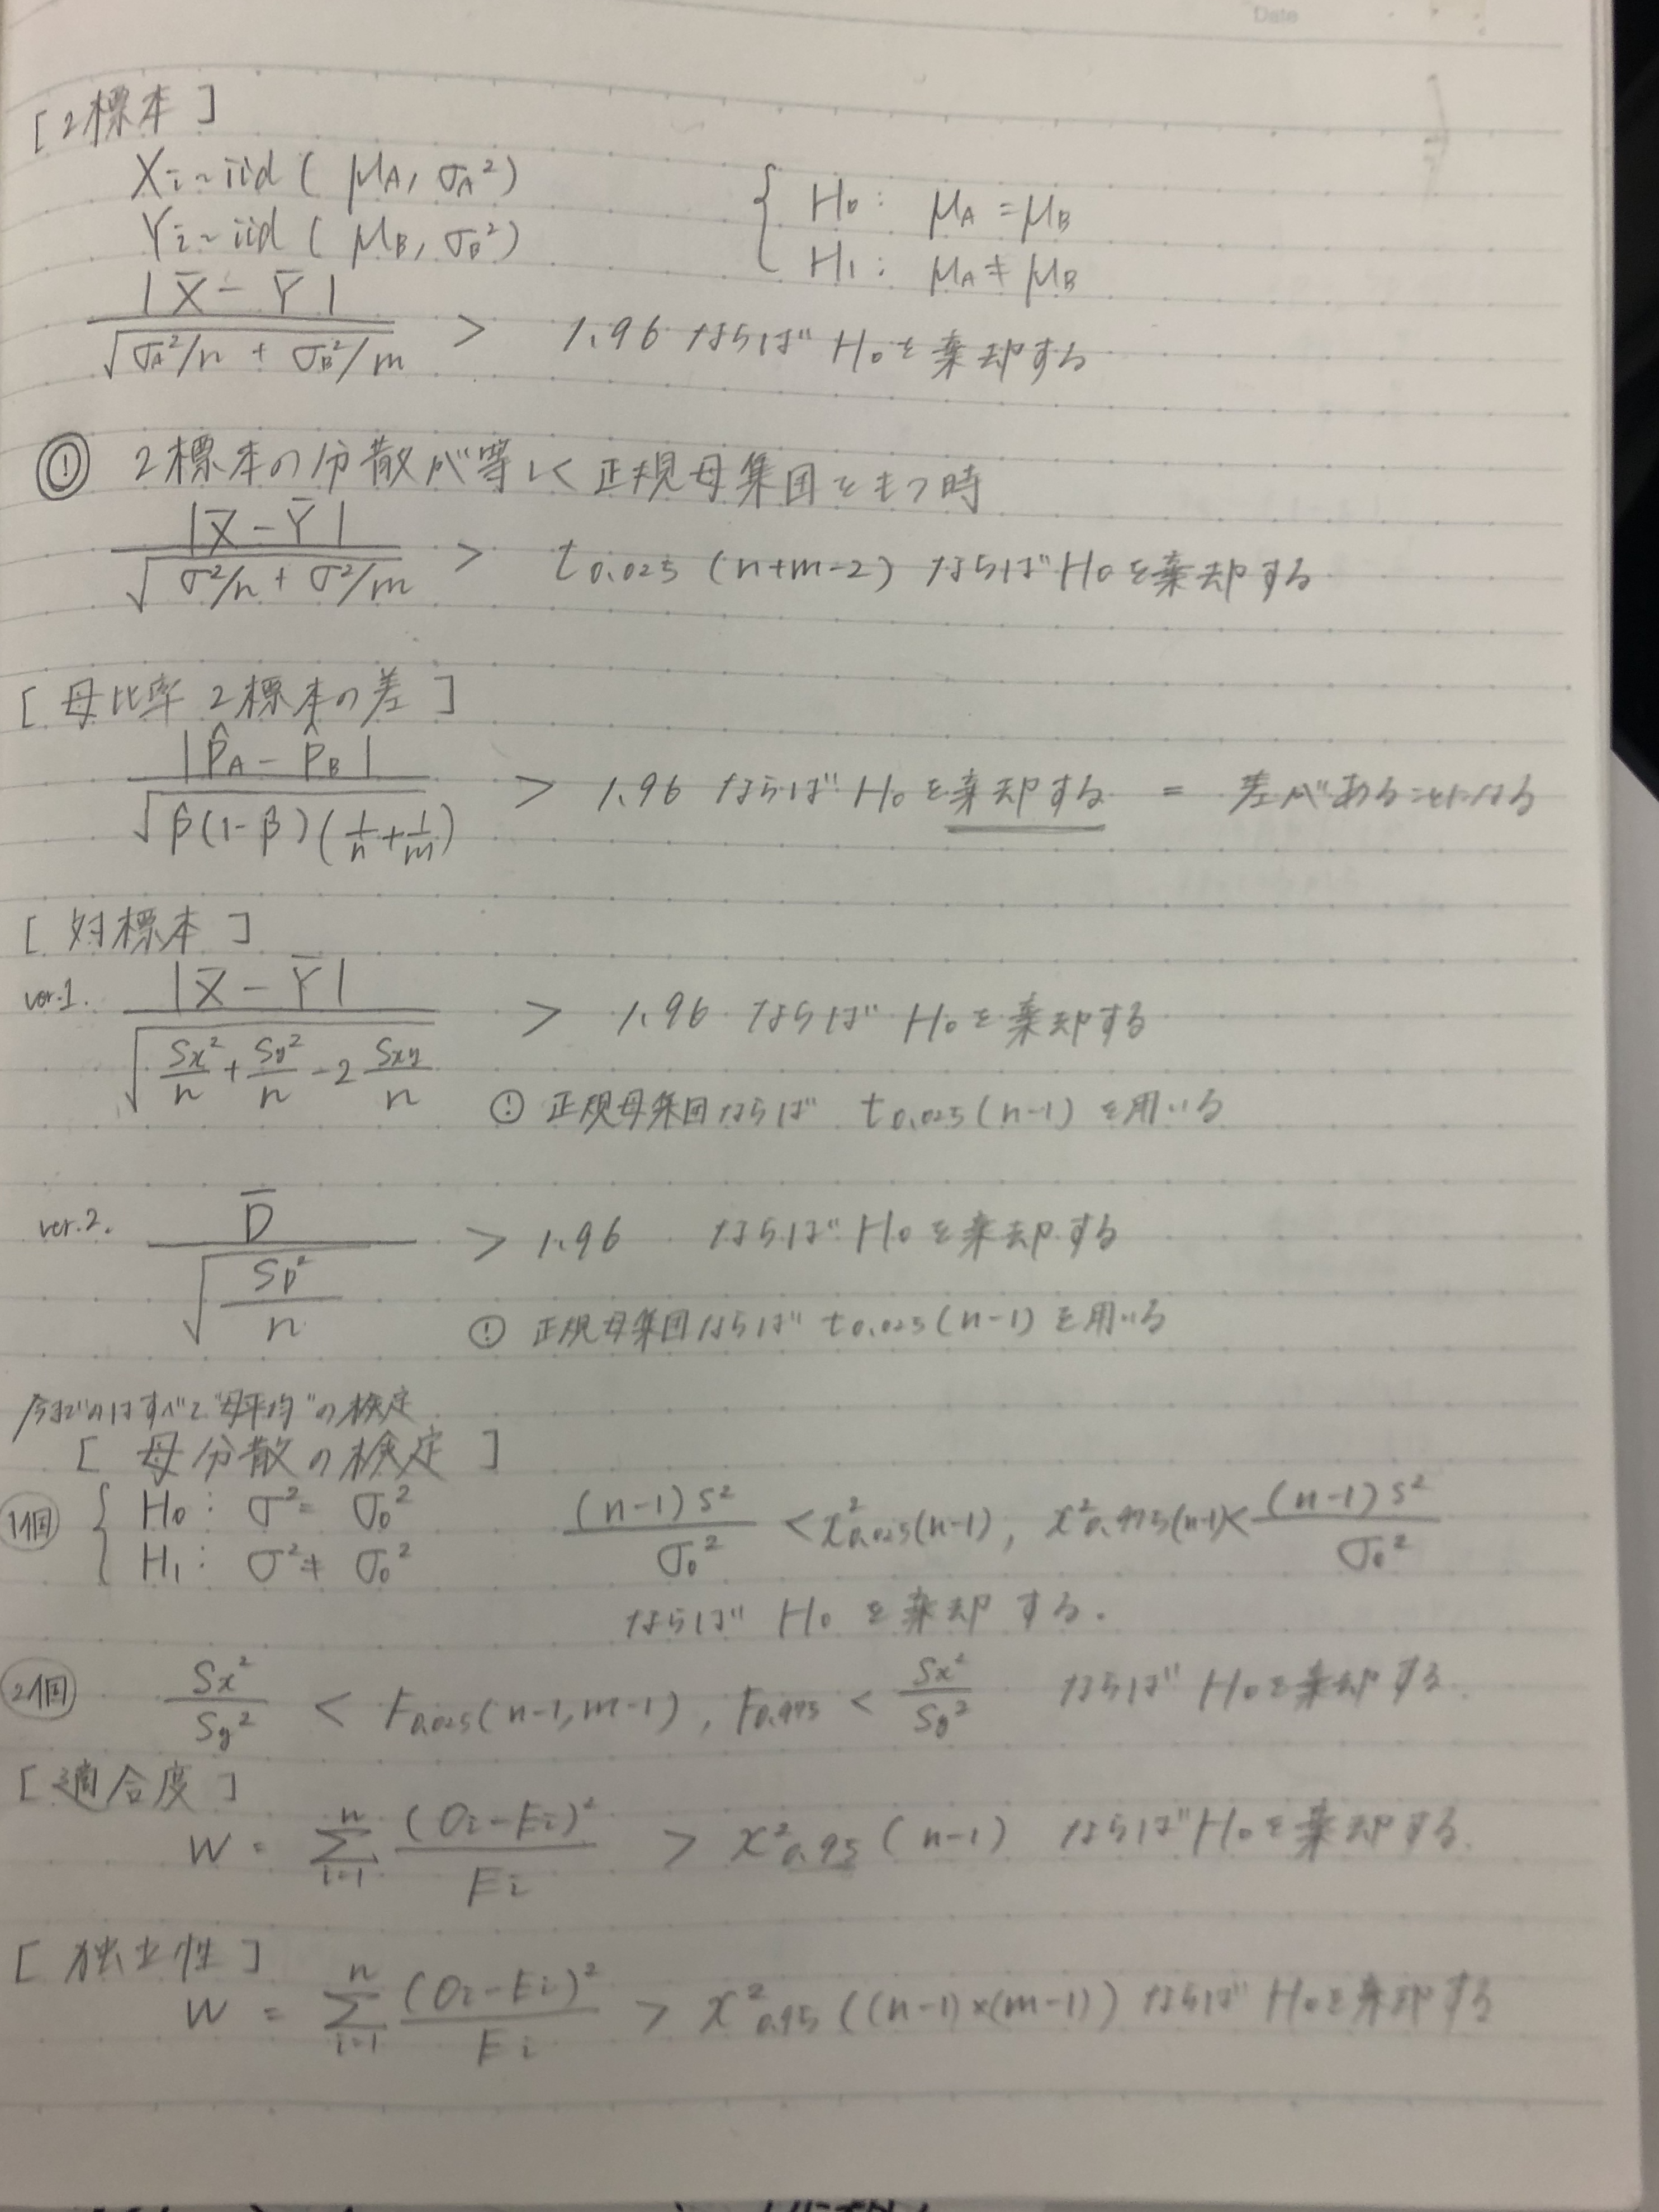 Date
[ 2標本 ]
Xi ~ iid ( μA, σA² )
Yi ~ iid ( μB, σB² )
{ H₀ : μA = μB
H₁ : μA ≠ μB
|X̄ - Ȳ| / √(σA²/n + σB²/m) > 1.96 ならば H₀を棄却する
! 2標本の分散が等しく正規母集団をもつ時
|X̄ - Ȳ| / √(σ²/n + σ²/m) > t0.025 (n+m-2) ならば H₀を棄却する
[ 母比率 2標本の差 ]
|p̂A - p̂B| / √(p̂(1-p̂)(1/n + 1/m)) > 1.96 ならば H₀を棄却する = 差があることになる
[ 対標本 ]
ver.1. |X̄ - Ȳ| / √(Sx²/n + Sy²/n - 2 Sxy/n) > 1.96 ならば H₀を棄却する
! 正規母集団ならば t0.025(n-1) を用いる
ver.2. D̄ / √(SD²/n) > 1.96 ならば H₀を棄却する
! 正規母集団ならば t0.025(n-1) を用いる
今までのはすべて"母平均"の検定
[ 母分散の検定 ]
1個 { H₀ : σ² = σ₀²
H₁ : σ² ≠ σ₀²
(n-1)S² / σ₀² < χ²0.025(n-1), χ²0.975(n-1) < (n-1)S² / σ₀²
ならば H₀ を棄却する.
2個 Sx²/Sy² < F0.025(n-1, m-1), F0.975 < Sx²/Sy² ならば H₀を棄却する.
[ 適合度 ]
W = Σ(i=1→n) (Oi-Ei)² / Ei > χ²0.95 (n-1) ならば H₀を棄却する.
[ 独立性 ]
W = Σ(i=1→n) (Oi-Ei)² / Ei > χ²0.95 ((n-1)×(m-1)) ならば H₀を棄却する